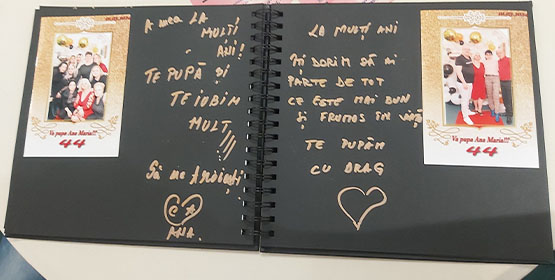 Va pupa Ana Maria!!!
44
A mea LA
MULȚI
ANI!
TE PUPĂ ȘI
TE iUBiM
MULT!!!
Să ne trăiești
ANA.
LA MULȚI ANI
ÎȚI DORIM SĂ AI
PARTE DE TOT
CE ESTE MAI BUN
ȘI FRUMOS ÎN VIAȚĂ
TE PUPĂM
CU DRAG
Va pupa Ana Maria!!!
44